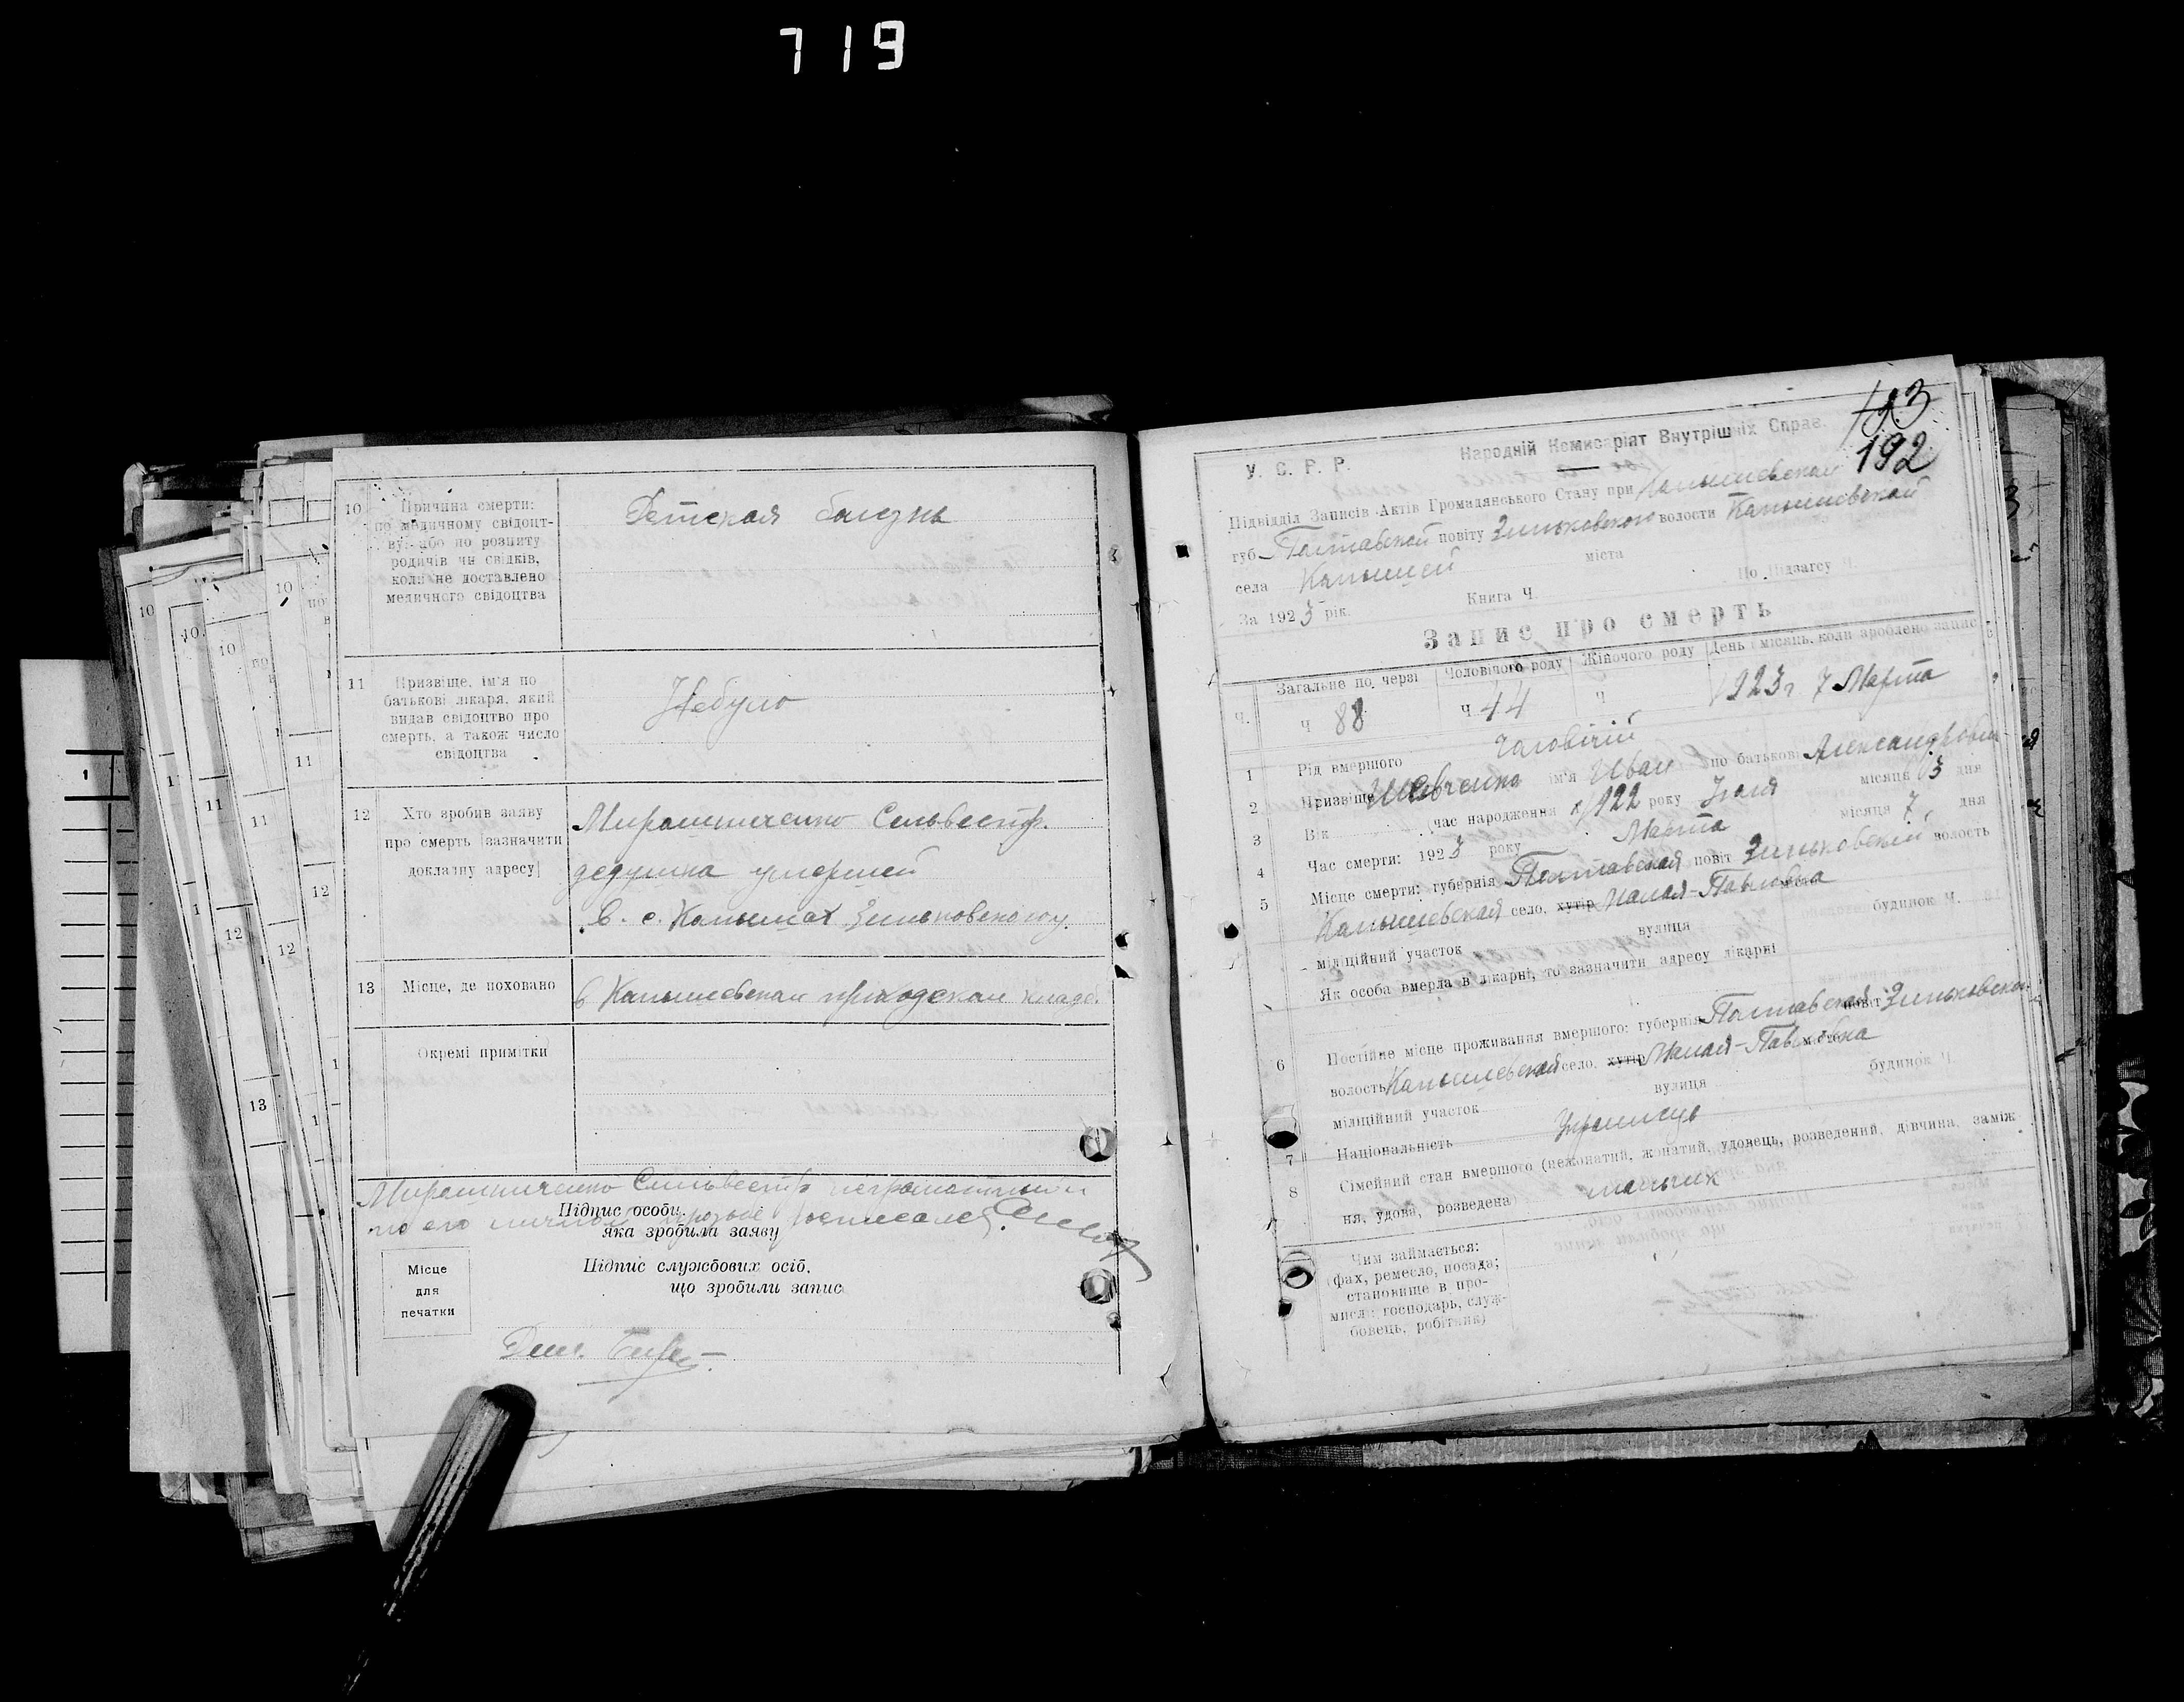 719
10
Причина смерти:
по медичному свідоцт-
ву, або по розпиту
родичів чи свідків,
коли не доставлено
медичного свідоцтва
Детская болезнь
11
Призвіще, ім'я по
батькові лікаря, який
видав свідоцтво про
смерть, а також число
свідоцтва
Небуло
12
Хто зробив заяву
про смерть (зазначити
докладну адресу)
Мирошниченко Сельвестр.
дедушка умершей
в. с. Камышах Зиньковского у.
13
Місце, де поховано
в Камышевском приходском кладб.
Окремі примітки
Мирошниченко Сильвестр неграмотный
по его личной прозьбе росписался
Підпис особи,
яка зробила заяву
Підпис службових осіб,
що зробили запис
Місце
для
печатки
193
192
У. С. Р. Р.
Народній Комисаріят Внутрішніх Справ.
Підвідділ Записів Актів Громадянського Стану при Камышевской
губ. Полтавской повіту Зиньковского волости Камышевской
села Камышей міста
За 1923 рік. Книга Ч. По Підзагсу Ч.
Запис про смерть
Ч. Загальне по черзі Чоловічого роду Жіночого роду День і місяць, коли зроблено запис
Ч 88 Ч 44 Ч 1923 г 7 Марта
1 Рід вмершого чоловічій
2 Призвіще Шевченко ім'я Иван по батькові Александрович
3 Вік (час народження 1922 року Июля місяця 3 дня
4 Час смерти: 1923 року Марта місяця 7 дня
5 Місце смерти: губернія Полтавская повіт Зиньковский волость
Камышевская село, хутір Малая-Павловка міста
міліційний участок вулиця будинок Ч.
Як особа вмерла в лікарні, то зазначити адресу лікарні
6 Постійне місце проживання вмершого: губернія Полтавская повіт Зиньковский
волость Камышевская село, хутір Малая-Павловка міста
міліційний участок вулиця будинок Ч.
7 Національність Украинець
8 Сімейний стан вмершого (нежонатий, жонатий, удовець, розведений, дівчина, заміж-
ня, удова, розведена) мальчик
Чим займається:
(фах, ремесло, посада;
становище в про-
мислі: господарь, служ-
бовець, робітник)